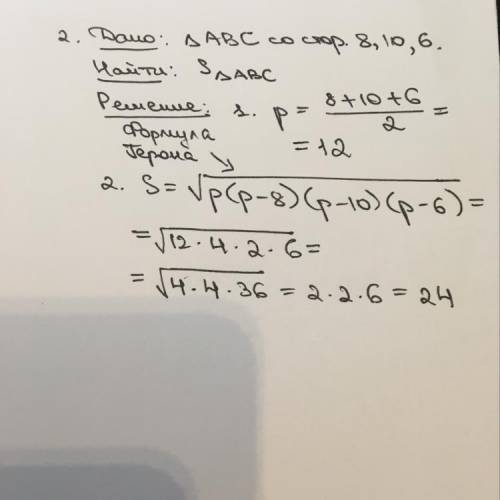 2. Дано: △ABC со стор. 8, 10, 6.
Найти: S△ABC
Решение: 1. p = (8+10+6)/2 =
Формула
= 12
Герона ↘
2. S = √(p(p-8)(p-10)(p-6)) =
= √(12·4·2·6) =
= √(4·4·36) = 2·2·6 = 24